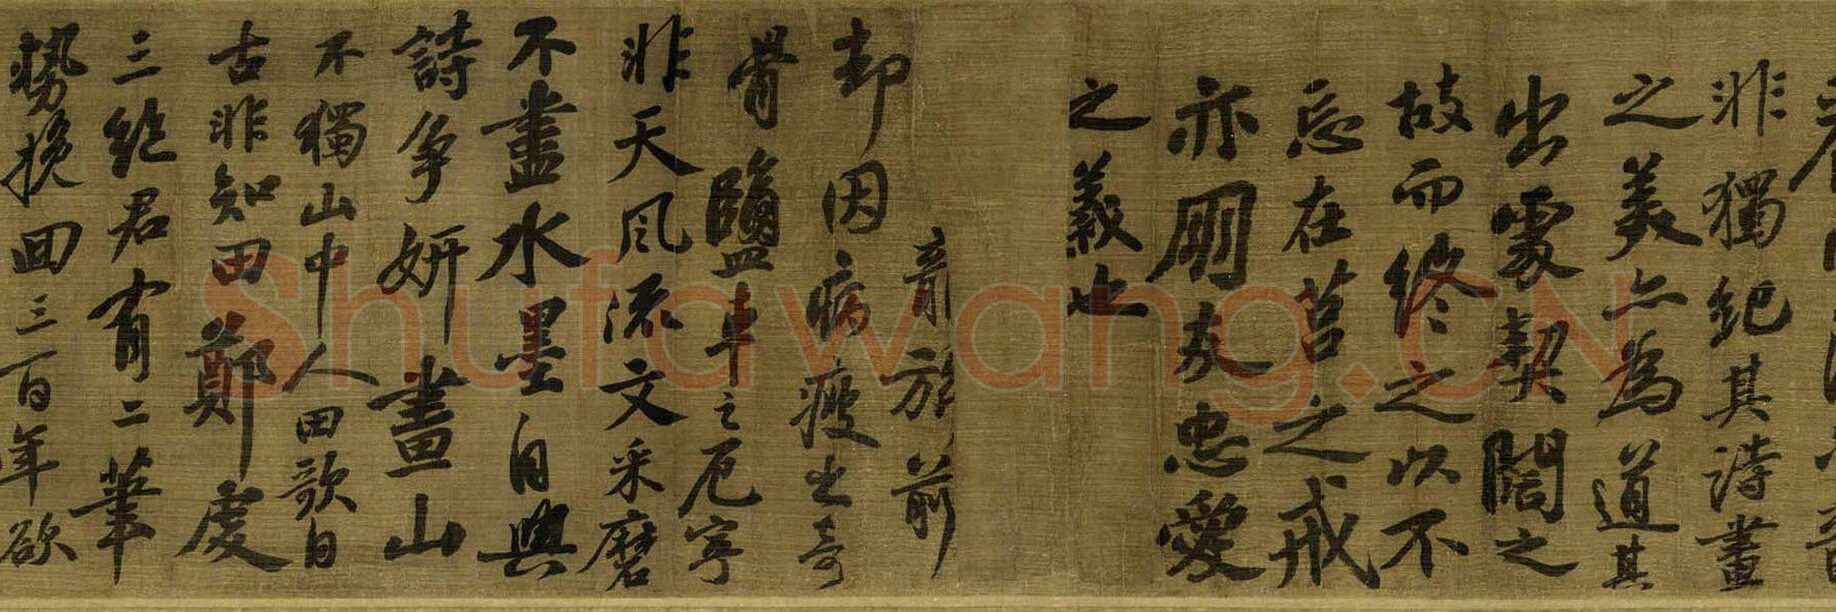 非獨紀其詩畫
之美亦為道其
出處契闊之
故而終之以不
忘在莒之戒
亦朋友忠愛
之義也
却因病瘦出奇
骨鹽車之厄寧
非天風流文采磨
不盡水墨自與
詩爭妍畫山
不獨山中人田歌自
古非知田鄭虔
三絕君有二筆
勢挽回三百年欲
Shufawang.CN